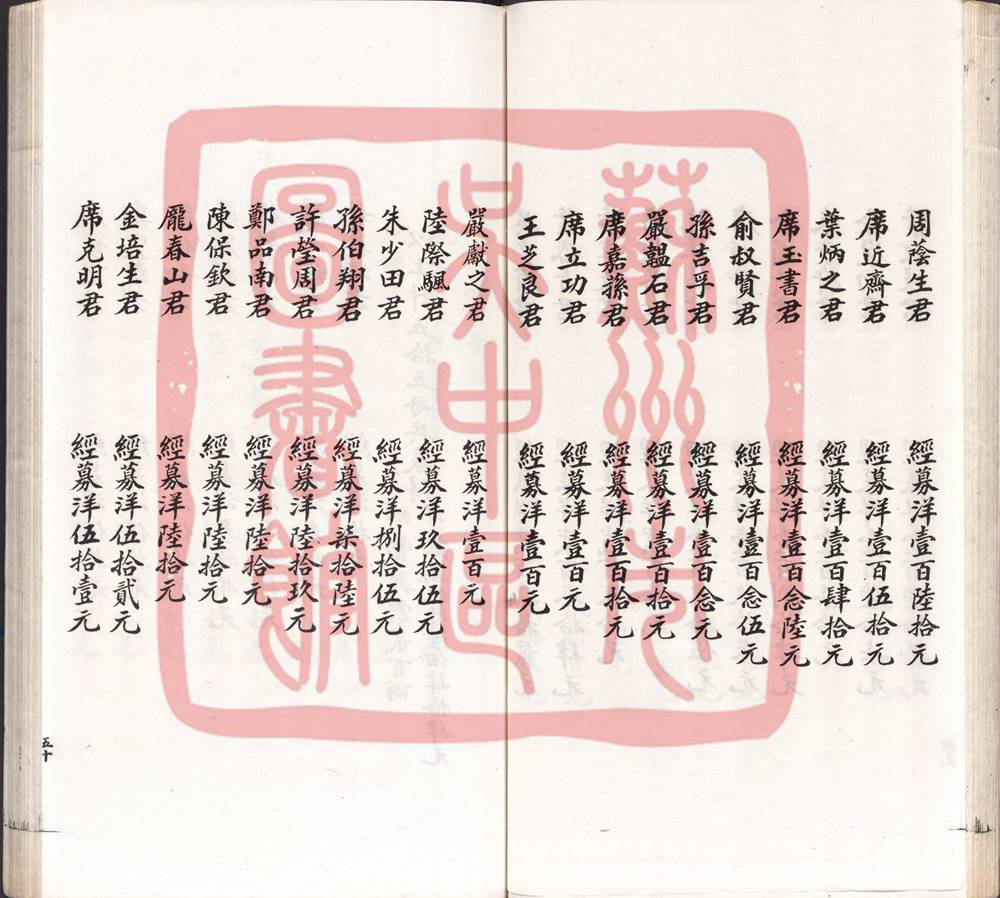 周蔭生君 經募洋壹百陸拾元
席近齋君 經募洋壹百伍拾元
葉炳之君 經募洋壹百肆拾元
席玉書君 經募洋壹百念陸元
俞叔賢君 經募洋壹百念伍元
孫吉孚君 經募洋壹百念元
嚴韞石君 經募洋壹百拾元
席嘉蓀君 經募洋壹百拾元
席立功君 經募洋壹百元
王芝良君 經募洋壹百元
嚴獻之君 經募洋壹百元
陸際颿君 經募洋玖拾伍元
朱少田君 經募洋捌拾伍元
孫伯翔君 經募洋柒拾陸元
許瑩周君 經募洋陸拾玖元
鄭品南君 經募洋陸拾元
陳保欽君 經募洋陸拾元
龎春山君 經募洋陸拾元
金培生君 經募洋伍拾貳元
席克明君 經募洋伍拾壹元
五十
蘇州市
吳中區
圖書館